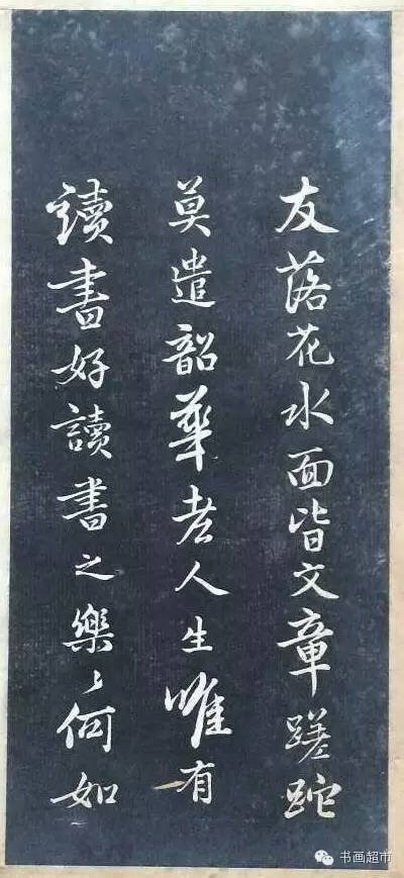 友落花水面皆文章蹉跎
莫遣韶華老人生唯有
讀書好讀書之樂〻何如
书画超市